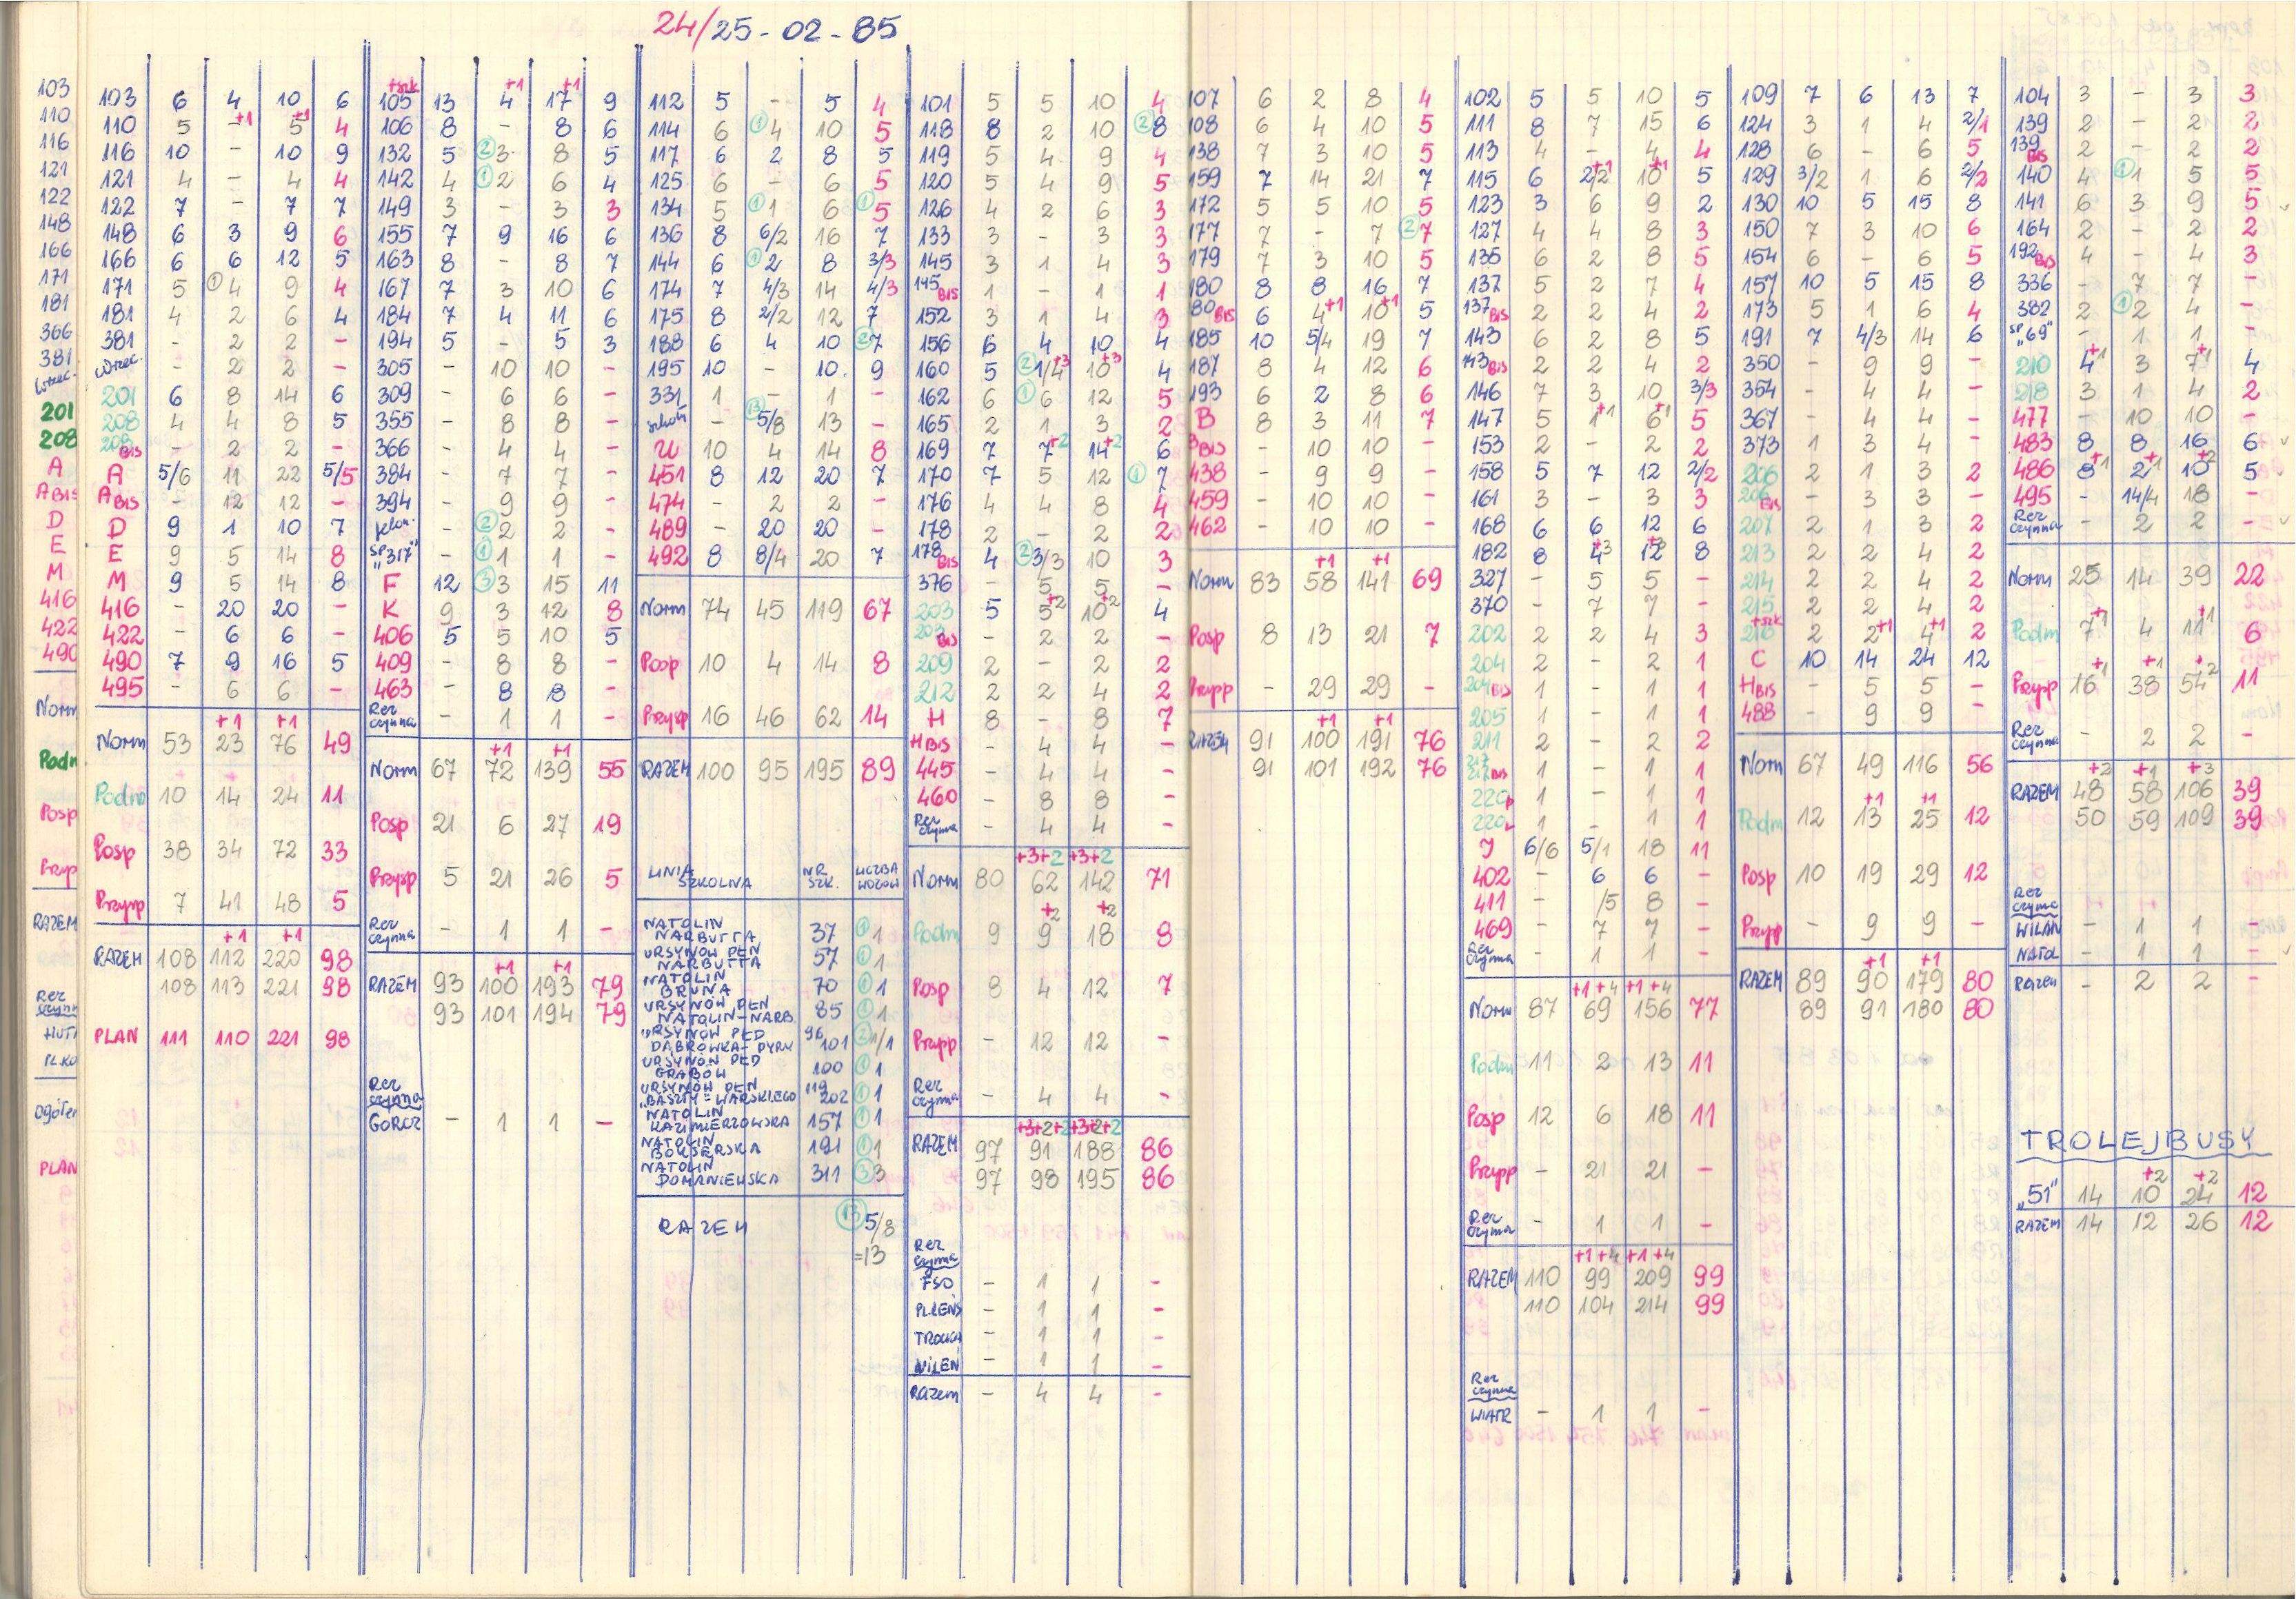 24/25-02-85
103
110
116
121
122
148
166
171
181
366
381
201
208
A
A BIS
D
E
M
416
422
490
Norm
Podm
Posp
RAZEM
Rez
PLAN
103 6 4 10 6
110 5 - +1 5 +1 4
116 10 - 10 9
121 4 - 4 4
122 7 - 7 7
148 6 3 9 6
166 6 6 12 5
171 5 ① 4 9 4
181 4 2 6 4
381 - 2 2 -
Wrzec. - 2 2 -
201 6 8 14 6
208 4 4 8 5
208 BIS - 2 2 -
A 5/6 11 22 5/5
A BIS - 12 12 -
D 9 1 10 7
E 9 5 14 8
M 9 5 14 8
416 - 20 20 -
422 - 6 6 -
490 7 9 16 5
495 - 6 6 -
+1 +1
Norm 53 23 76 49
Podm 10 14 24 11
Posp 38 34 72 33
Przysp 7 41 48 5
+1 +1
RAZEM 108 112 220 98
108 113 221 98
PLAN 111 110 221 98
+szk +1 +1
105 13 4 17 9
106 8 - 8 6
132 5 ② 3 8 5
142 4 ① 2 6 4
149 3 - 3 3
155 7 9 16 6
163 8 - 8 7
167 7 3 10 6
184 7 4 11 6
194 5 - 5 3
305 - 10 10 -
309 - 6 6 -
355 - 8 8 -
366 - 4 4 -
384 - 7 7 -
394 - 9 9 -
② 2 2 -
SP "317" - ① 1 1 -
F 12 ③ 3 15 11
K 9 3 12 8
406 5 5 10 5
409 - 8 8 -
463 - 8 8 -
Rez czynna - 1 1 -
+1 +1
Norm 67 72 139 55
Posp 21 6 27 19
Przysp 5 21 26 5
Rez czynna - 1 1 -
+1 +1
RAZEM 93 100 193 79
93 101 194 79
Rez czynna
GORCZ - 1 1 -
112 5 - 5 4
114 6 ① 4 10 5
117 6 2 8 5
125 6 - 6 5
134 5 ① 1 6 ① 5
136 8 6/2 16 7
144 6 ① 2 8 3/3
174 7 4/3 14 4/3
175 8 2/2 12 7
188 6 4 10 ② 7
195 10 - 10. 9
331 1 - 1 -
szkoln ⑬ 5/8 13 -
U 10 4 14 8
451 8 12 20 7
474 - 2 2 -
489 - 20 20 -
492 8 8/4 20 7
Norm 74 45 119 67
Posp 10 4 14 8
Przysp 16 46 62 14
RAZEM 100 95 195 89
LINIA SZKOLNA NR. SZK. LICZBA WOZÓW
NATOLIN NARBUTTA 37 ① 1
URSYNÓW PŁN NARBUTTA 57 ① 1
NATOLIN BRUNA 70 ① 1
URSYNÓW PŁN NATOLIN-NARB. 85 ① 1
URSYNÓW PŁD DĄBRÓWKA-PYRY 96/101 ② 1/1
URSYNÓW PŁD GRABÓW 100 ① 1
URSYNÓW PŁN "BASZTY" = WARSKIEGO 119/202 ① 1
NATOLIN KAZIMIERZOWSKA 157 ① 1
NATOLIN BOKSERSKA 191 ① 1
NATOLIN DOMANIEWSKA 311 ③ 3
RAZEM ⑬ 5/8
=13
101 5 5 10 4
118 8 2 10 ② 8
119 5 4 9 4
120 5 4 9 5
126 4 2 6 3
133 3 - 3 3
145 3 1 4 3
145 BIS 1 - 1 1
152 3 1 4 3
156 6 4 10 4
160 5 ② 1/4 +3 10 +3 4
162 6 ① 6 12 5
165 2 1 3 2
169 7 7 +2 14 +2 6
170 7 5 12 ① 7
176 4 4 8 4
178 2 - 2 2
178 BIS 4 ② 3/3 10 3
376 - 5 5 -
203 5 5 +2 10 +2 4
203 BIS - 2 2 -
209 2 - 2 2
212 2 2 4 2
H 8 - 8 7
H BIS - 4 4 -
445 - 4 4 -
460 - 8 8 -
Rez czynna - 4 4 -
+3+2 +3+2
Norm 80 62 142 71
+2 +2
Podm 9 9 18 8
Posp 8 4 12 7
Przysp - 12 12 -
Rez czynna - 4 4 -
+3+2+2 +3+2+2
RAZEM 97 91 188 86
97 98 195 86
Rez czynna
FSO - 1 1 -
PL.LENS - 1 1 -
TROCKA - 1 1 -
WILEN - 1 1 -
Razem - 4 4 -
107 6 2 8 4
108 6 4 10 5
138 7 3 10 5
159 7 14 21 7
172 5 5 10 5
177 7 - 7 ② 7
179 7 3 10 5
180 8 8 16 7
80 BIS 6 4 +1 10 +1 5
185 10 5/4 19 7
187 8 4 12 6
193 6 2 8 6
B 8 3 11 7
B BIS - 10 10 -
438 - 9 9 -
459 - 10 10 -
462 - 10 10 -
+1 +1
Norm 83 58 141 69
Posp 8 13 21 7
Przysp - 29 29 -
+1 +1
RAZEM 91 100 191 76
91 101 192 76
102 5 5 10 5
111 8 7 15 6
113 4 - 4 4
115 6 2/2 +1 10 +1 5
123 3 6 9 2
127 4 4 8 3
135 6 2 8 5
137 5 2 7 4
137 BIS 2 2 4 2
143 6 2 8 5
143 BIS 2 2 4 2
146 7 3 10 3/3
147 5 1 +1 6 +1 5
153 2 - 2 2
158 5 7 12 2/2
161 3 - 3 3
168 6 6 12 6
182 8 4 +3 12 +3 8
327 - 5 5 -
370 - 7 7 -
202 2 2 4 3
204 2 - 2 1
204 BIS 1 - 1 1
205 1 - 1 1
211 2 - 2 2
217 BIS 1 - 1 1
220 P 1 - 1 1
220 L 1 - 1 1
J 6/6 5/1 18 11
402 - 6 6 -
411 - /5 8 -
469 - 7 7 -
Rez czynna - 1 1 -
+1+4 +1+4
Norm 87 69 156 77
Podm 11 2 13 11
Posp 12 6 18 11
Przysp - 21 21 -
Rez czynna - 1 1 -
+1+4 +1+4
RAZEM 110 99 209 99
110 104 214 99
Rez czynna
WIATR - 1 1 -
109 7 6 13 7
124 3 1 4 2/1
128 6 - 6 5
129 3/2 1 6 2/2
130 10 5 15 8
150 7 3 10 6
154 6 - 6 5
157 10 5 15 8
173 5 1 6 4
191 7 4/3 14 6
350 - 9 9 -
354 - 4 4 -
367 - 4 4 -
373 1 3 4 -
206 2 1 3 2
206 BIS - 3 3 -
207 2 1 3 2
213 2 2 4 2
214 2 2 4 2
215 2 2 4 2
+szk
216 2 2 +1 4 +1 2
C 10 14 24 12
H BIS - 5 5 -
488 - 9 9 -
Norm 67 49 116 56
+1 +1
Podm 12 13 25 12
Posp 10 19 29 12
Przysp - 9 9 -
+1 +1
RAZEM 89 90 179 80
89 91 180 80
104 3 - 3 3
139 2 - 2 2
139 BIS 2 - 2 2
140 4 ① 1 5 5
141 6 3 9 5
164 2 - 2 2
192 BIS 4 - 4 3
336 - 7 7 -
382 - ① 2 4 -
SP "69" - 1 1 -
210 4 +1 3 7 +1 4
218 3 1 4 2
477 - 10 10 -
483 8 8 16 6
486 8 +1 2 +1 10 +2 5
495 - 14/4 18 -
Rez czynna - 2 2 -
Norm 25 14 39 22
Podm 7 +1 4 11 +1 6
+1 +1 +2
Przysp 16 38 54 11
Rez czynna - 2 2 -
+2 +1 +3
RAZEM 48 58 106 39
50 59 109 39
Rez czynna
WILAN - 1 1 -
NATOL - 1 1 -
Razem - 2 2 -
TROLEJBUSY
+2 +2
"51" 14 10 24 12
RAZEM 14 12 26 12